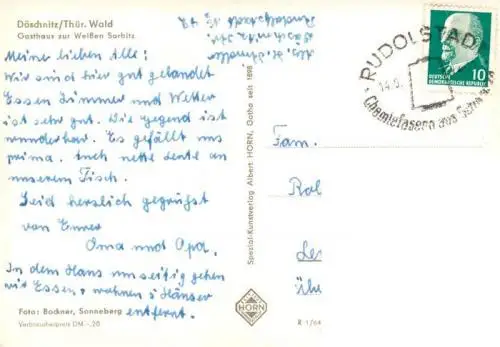 Döschnitz/Thür. Wald
Gasthaus zur Weißen Sorbitz
Meine lieben Alle!
Wir sind hier gut gelandet
Essen Zimmer und Wetter
ist sehr gut. Die Gegend ist
wunderbar. Es gefällt uns
prima. Auch nette Leute an
unserem Tisch.
Seid herzlich gegrüßt
von Eurer
Oma und Opa.
In dem Haus umseitig gehen
wir Essen, wohnen 5 Häuser
entfernt.
Foto: Bockner, Sonneberg
Verbraucherpreis DM -,20
Spezial-Kunstverlag Albert HORN, Gotha seit 1898
HORN
R 1/64
RUDOLSTADT
14.8.
Chemiefasern aus
DEUTSCHE
DEMOKRATISCHE REPUBLIK
10
Fam.